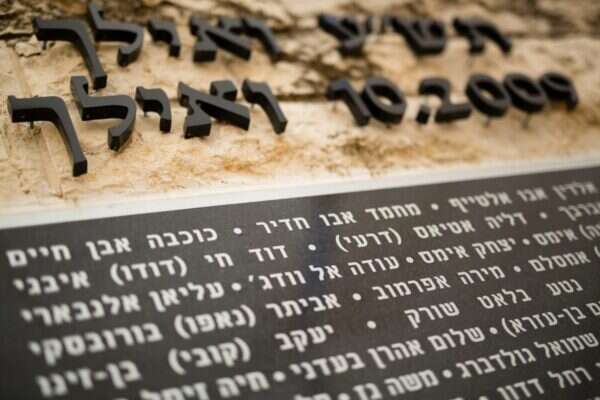 תש"ע ואילך
10.2009 ואילך
אלדין אבו אלטייף • מחמד אבו חדיר • כוכבה אבן חיים
• דליה אטיאס (דרעי) • דוד חי (דודו) איבני
אימס • יצחק אימס • עודה אל וודג' • עליאן אלנבארי
אמסלם • מירה אפרמוב • אביתר (נאפו) בורובסקי
נטע בלאט שורק • יעקב (קובי) בן-זינו
בן-עזרא) • שלום אהרן בעדני • חיה זיסל
שמואל גולדברג • משה בן
רחל דדון